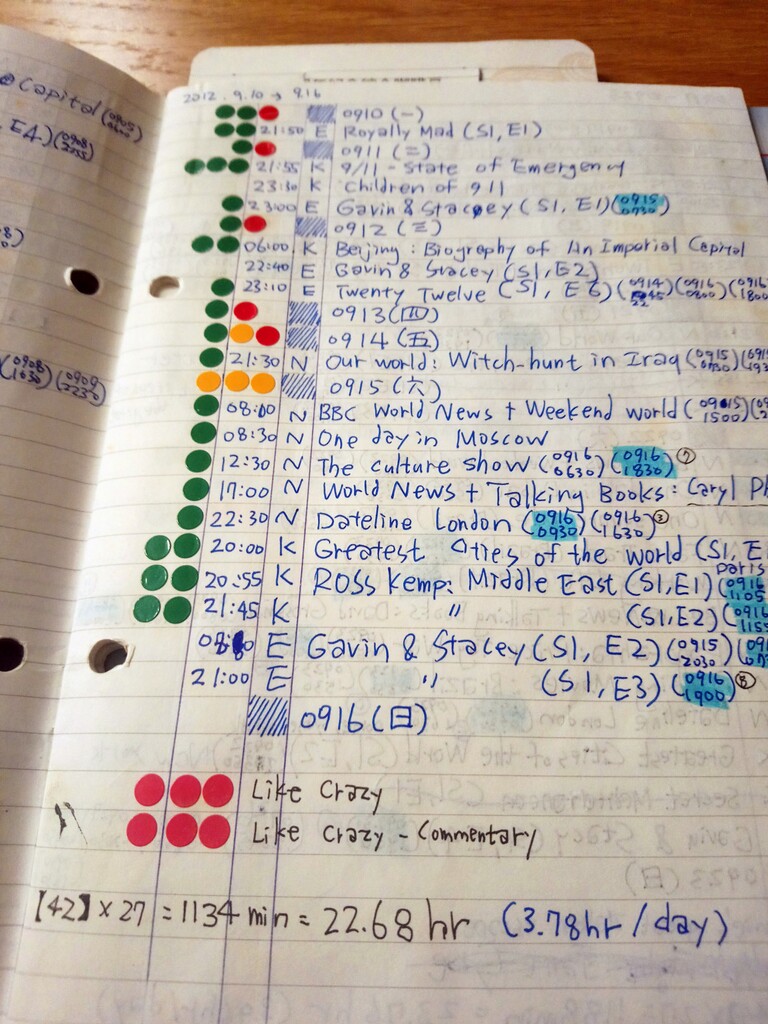 Capital (0905 0600)
E4.) (0908 2255)
(0908 1630) (0909 2230)
2012. 9.10 → 9.16
0910 (一)
21:50 E Royally Mad (S1, E1)
0911 (二)
21:55 K 9/11 - State of Emergency
23:30 K Children of 911
23:00 E Gavin & Stacey (S1, E1) (0915 0730)
0912 (三)
06:00 K Beijing: Biography of An Imperial Capital
22:40 E Gavin & Stacey (S1, E2)
23:10 E Twenty Twelve (S1, E6) (0914 2245) (0916 0800) (0916 1800
0913 (四)
0914 (五)
21:30 N Our world: Witch-hunt in Iraq (0915 0730)
0915 (六)
08:00 N BBC World News + Weekend world (0915 1500)
08:30 N One day in Moscow
12:30 N The culture show (0916 0630) (0916 1830) ⑦
17:00 N World News + Talking Books: Caryl Ph
22:30 N Dateline London (0916 0930) (0916 1630) ③
20:00 K Greatest Cities of the world (S1, E
Paris
20:55 K ROSS Kemp: Middle East (S1, E1) (0916 1105
21:45 K " (S1, E2) (0916 1155
E Gavin & Stacey (S1, E2) (0915 2030)
21:00 E " (S1, E3) (0916 1900) ⑧
0916 (日)
Like Crazy
Like Crazy - Commentary
【42】 x 27 = 1134 min = 22.68 hr (3.78hr / day)